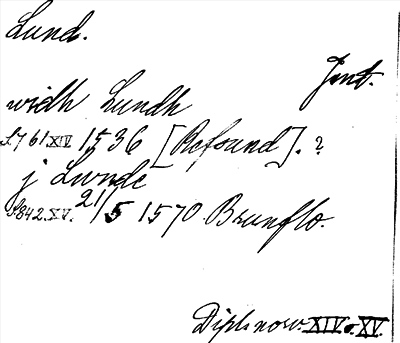 Lund.
Jmt.
widh Lundh
S. 761. XIV 1536 [Refsund]. ?
j Lunde
S. 842. XV. 21/5 1570 Brunflo.
Dipl. norv. XIV o. XV.